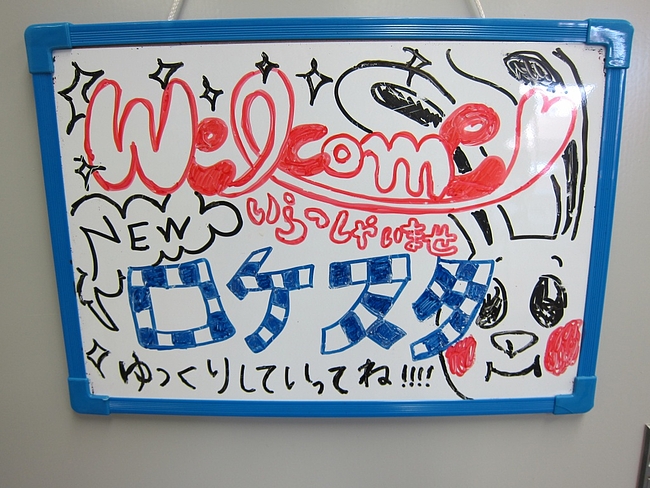 Welcome
いらっしゃいませ
NEW
ロケスタ
ゆっくりしていってね!!!!